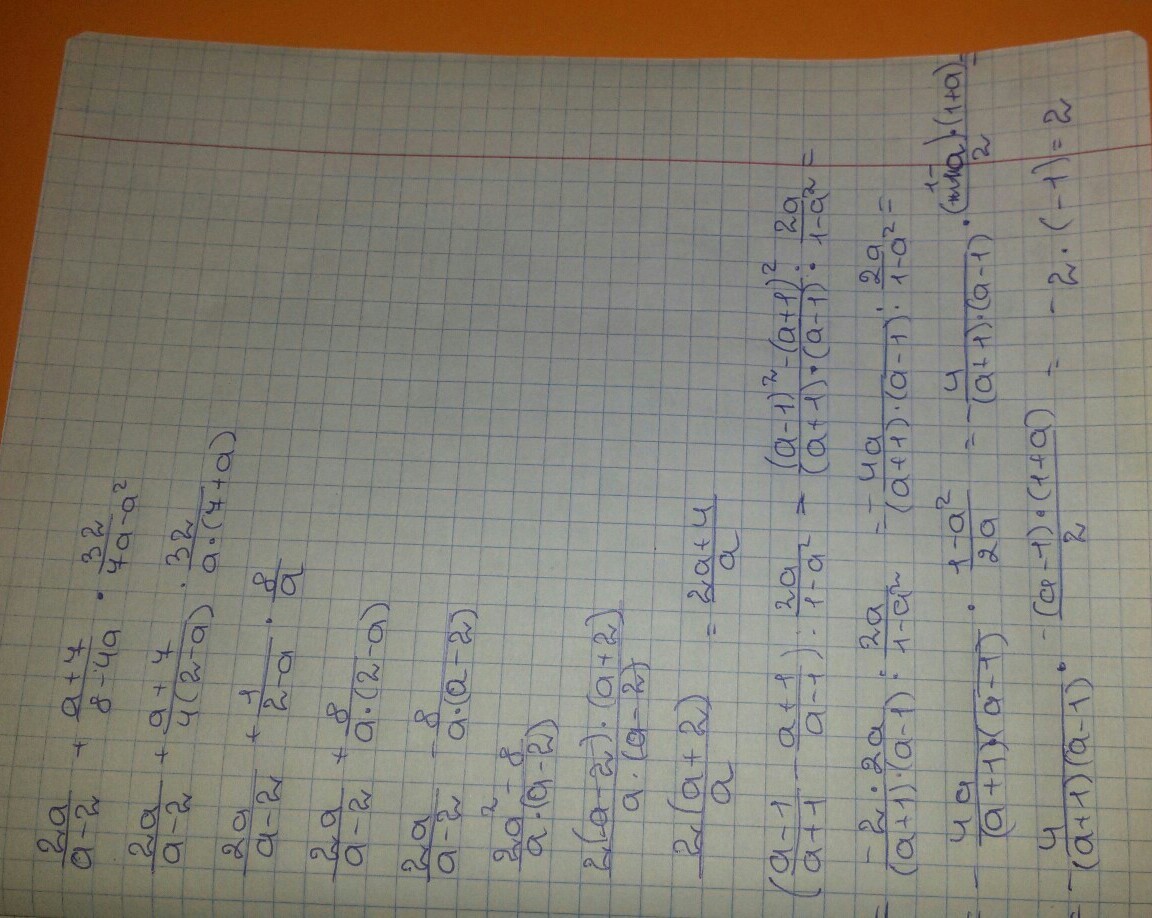 2a/(a-2) + (a+7)/(8-4a) · 32/(7a-a²)
2a/(a-2) + (a+7)/(4(2-a)) · 32/(a·(7+a))
2a/(a-2) + 1/(2-a) · 8/a
2a/(a-2) + 8/(a·(2-a))
2a/(a-2) - 8/(a·(a-2))
(2a²-8)/(a·(a-2))
(2(a-2)·(a+2))/(a·(a-2))
(2(a+2))/a = (2a+4)/a
((a-1)/(a+1) - (a+1)/(a-1)) : 2a/(1-a²) = ((a-1)²-(a+1)²)/((a+1)·(a-1)) : 2a/(1-a²) =
= (-2·2a)/((a+1)·(a-1)) : 2a/(1-a²) = - 4a/((a+1)·(a-1)) : 2a/(1-a²) =
= - 4a/((a+1)(a-1)) · (1-a²)/2a = - 4/((a+1)·(a-1)) · ((1-a)·(1+a))/2 =
= - 4/((a+1)(a-1)) · (-(a-1)·(1+a))/2 = -2·(-1)=2